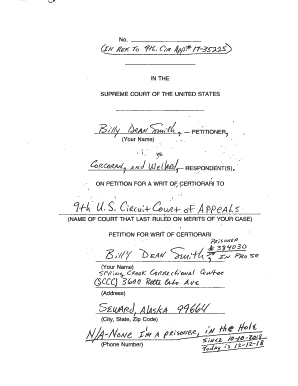 No.
(IN REF TO 9th. Cir App# 17-35225)
IN THE
SUPREME COURT OF THE UNITED STATES
Billy Dean Smith, — PETITIONER,
(Your Name)
vs.
Corcoran, and Welked, — RESPONDENT(S).
ON PETITION FOR A WRIT OF CERTIORARI TO
9th U.S. Circuit Court of Appeals
(NAME OF COURT THAT LAST RULED ON MERITS OF YOUR CASE)
PETITION FOR WRIT OF CERTIORARI
PRISONER
Billy Dean Smith, IN PRO SE
(Your Name)
Spring Creek Correctional Center
(SCCC) 3600 Gate Ave
(Address)
SEWARD, ALASKA 99664
(City, State, Zip Code)
N/A-None I'm a prisoner, in the Hole
Since 10-10-2018
(Phone Number)
Today is 12-12-18